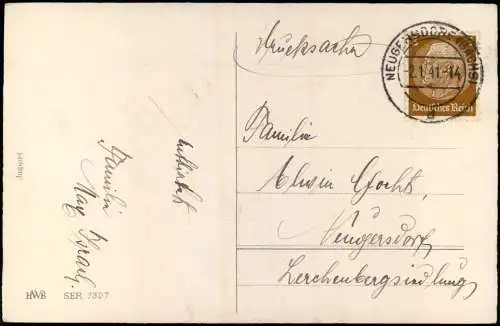 Drucksache
NEUGERSDORF (SACHS)
-2.1.41.-14
a
Deutsches Reich
Familie
Alwin
Neugersdorf,
Lerchenbergsiedlung
Familie
Max
Import
HWB SER 7397